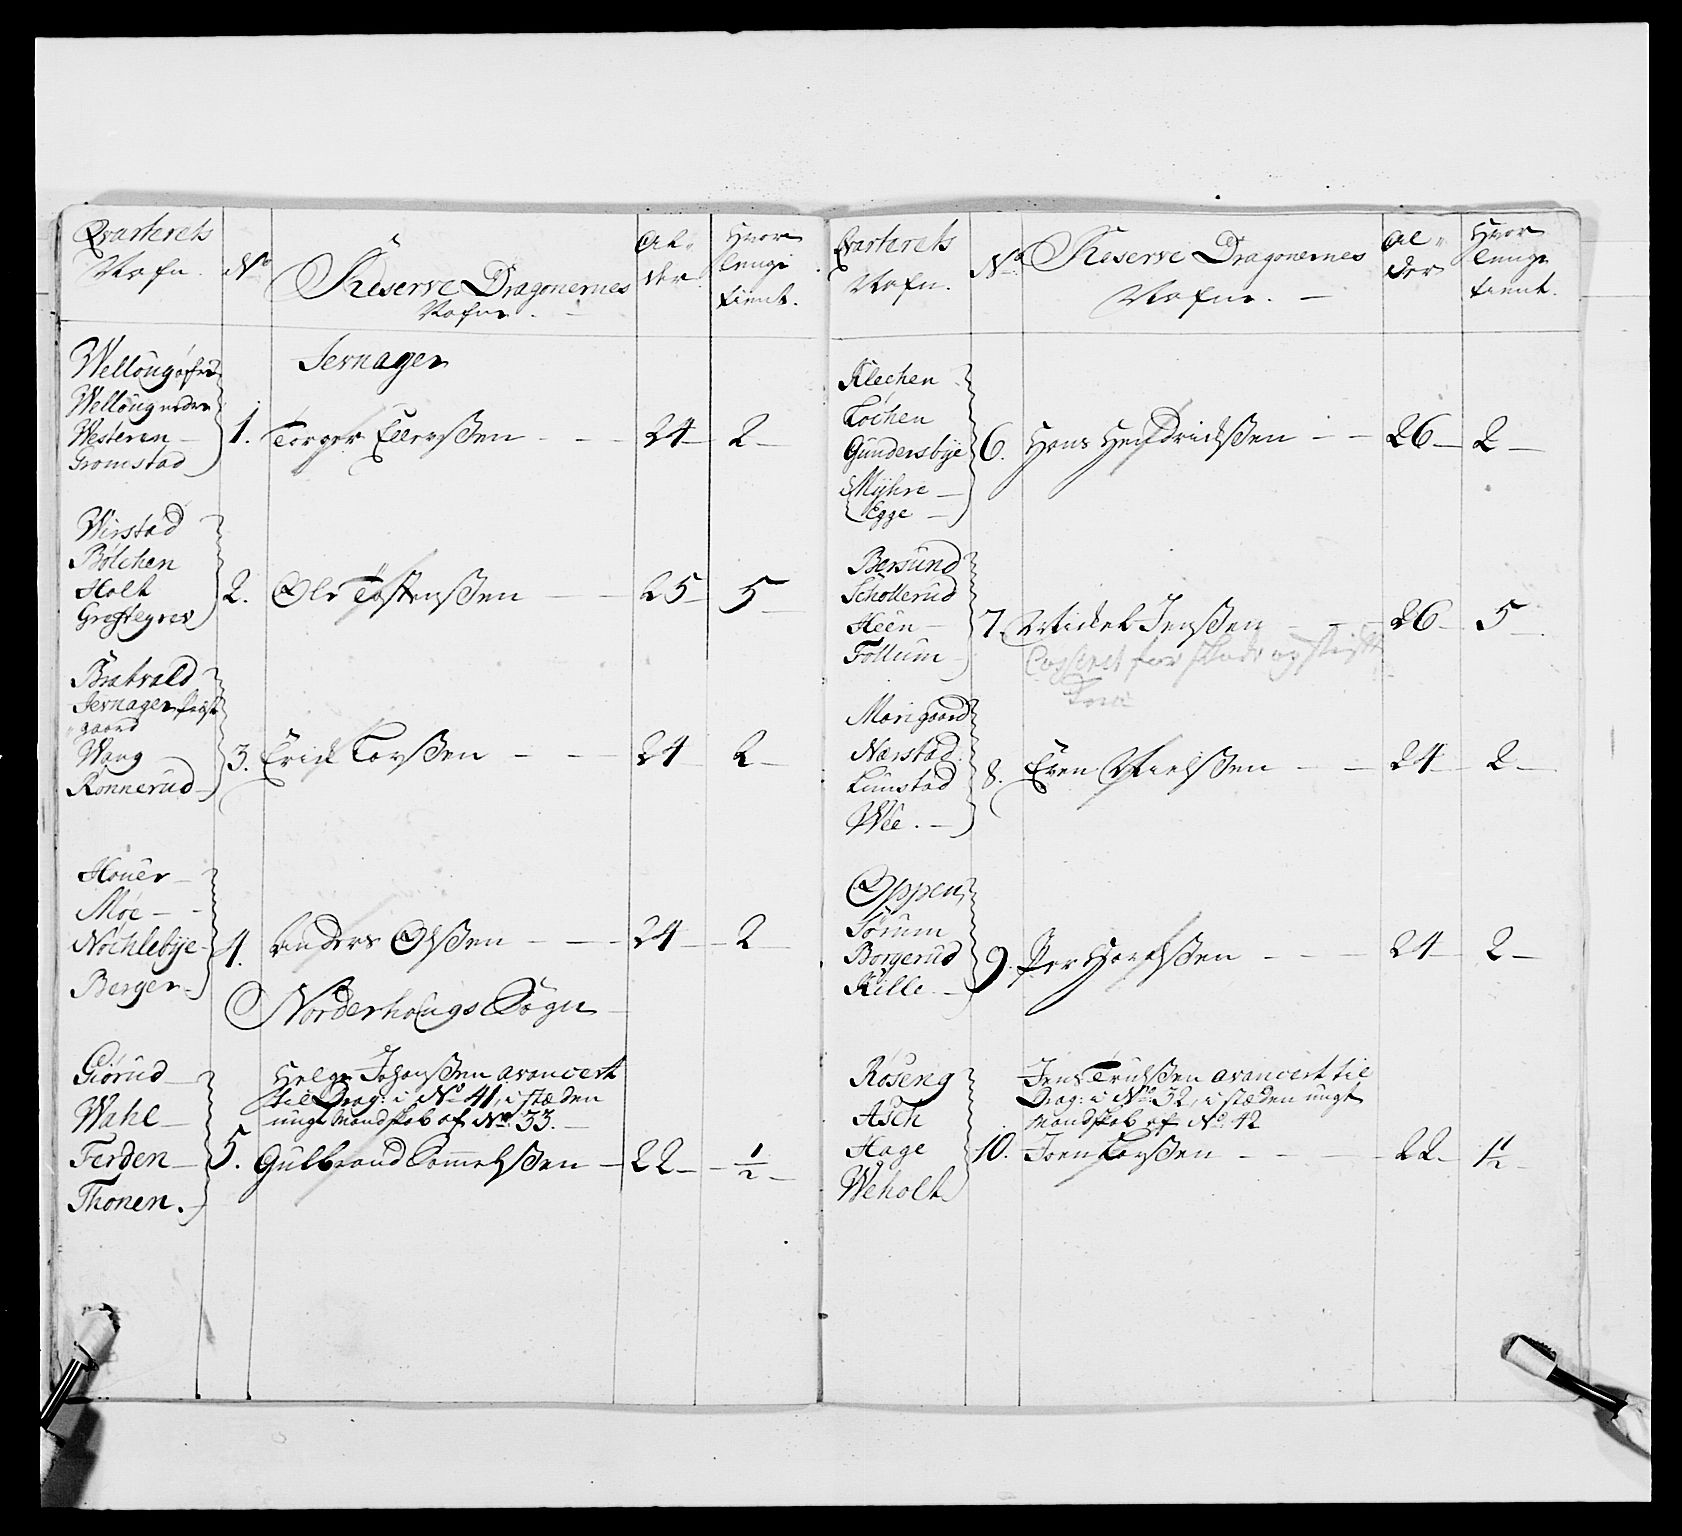 Qvarterets
Nafn.
No
Reserve Dragonernes
Nafne.
Al-
der
Hvor
lenge
tient.
Jevnager
Welloug øfre
Welloug nedre
Westeren
Gromstad
1. Torger Ellerssen 24 2
Wirstad
Bølchen
Holt
Greftegrev
2. Ole Tostenssen 25 5
Bratvald
Jevnager Præste
gaard
Wang
Ronnerud
3. Erich Larssen 24 2
Houer
Moe
Nochlebÿe
Berger
4. Anders Olssen 24 2
Norderhougs Sogn
Giørud
Wahl
Ferden
Thonen.
Helge Johanssen avancert
til Drag: i No 41, i stæden
ungt Mandskab af No 33.
5. Gulbrand Tommelssen 22 1/2
Qvarterets
Nafn.
No
Reserve Dragonernes
Nafne.
Al-
der
Hvor
lenge
tient.
Klechen
Lochen
Gundersbÿe
Mÿhre
Egge
6. Hans Hendrichssen 26 2
Bersund
Schollerud
Heen
Follum
7. Michel Jenssen 26 5
Casseret for
Marigaard
Nærstad
Lunstad
Wee.
8. Even Nielssen 24 2
Oppen
Sørum
Borgerud
Kille
9. Per Haralssen 24 2
Roseng
Asch
Hage
Weholt
Jens Trulssen avancert til
Drag: i No 32, i stæden ungt
Mandskab af No 42
10. Joen Larssen 22 1/2